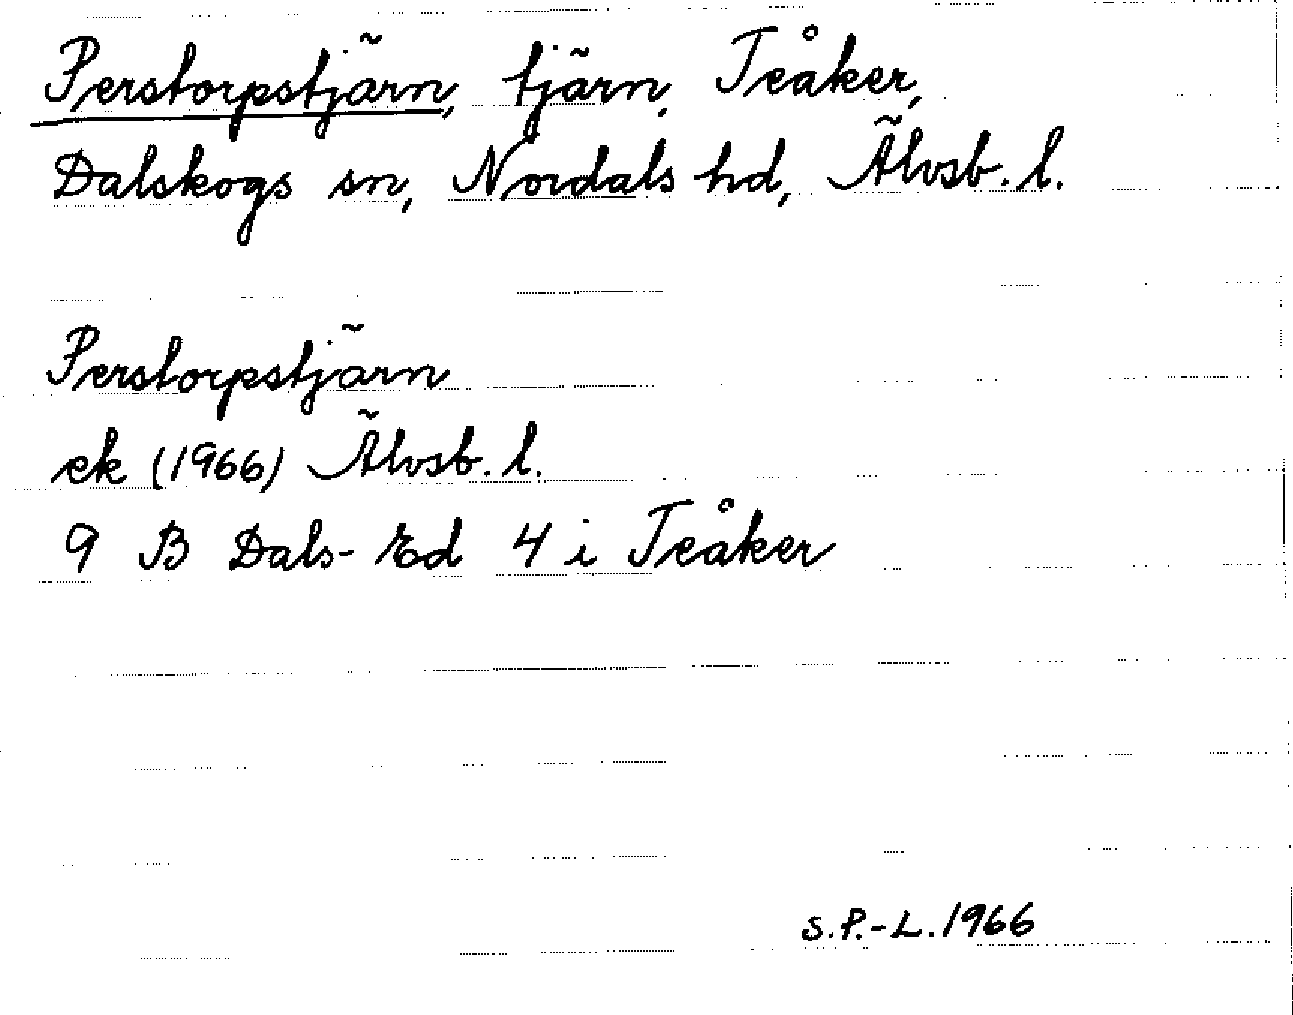 Perstorpstjärn, tjärn, Teåker,
Dalskogs sn, Nordals hd, Älvsb. l.
Perstorpstjärn
ek (1966) Älvsb. l.
9 B Dals-Ed 4 i Teåker
S.P.-L.1966